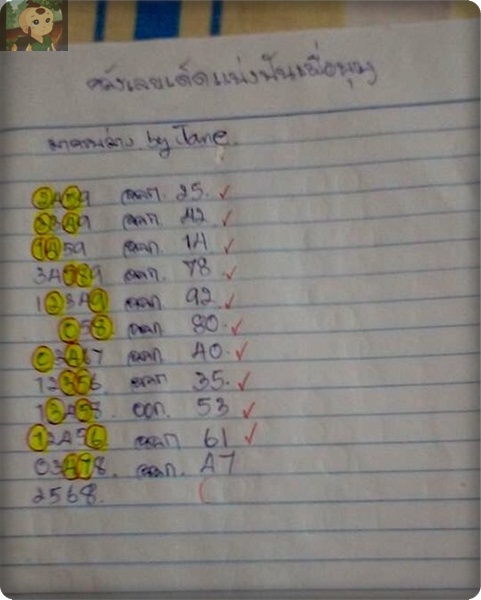 หวังเลขเด็ดแบ่งปันเพื่อนๆ
มาตามล่าง by Jane.
2459 ออก. 25. ✓
2349 ออก 42 ✓
1459 ออก 14 ✓
34789 ออก. 78 ✓
12349 ออก 92 ✓
058 ออก 80 ✓
02467 ออก. 40 ✓
12356 ออก 35. ✓
13458. ออก. 53 ✓
12456 ออก 61 ✓
03478. ออก. 47
2568.